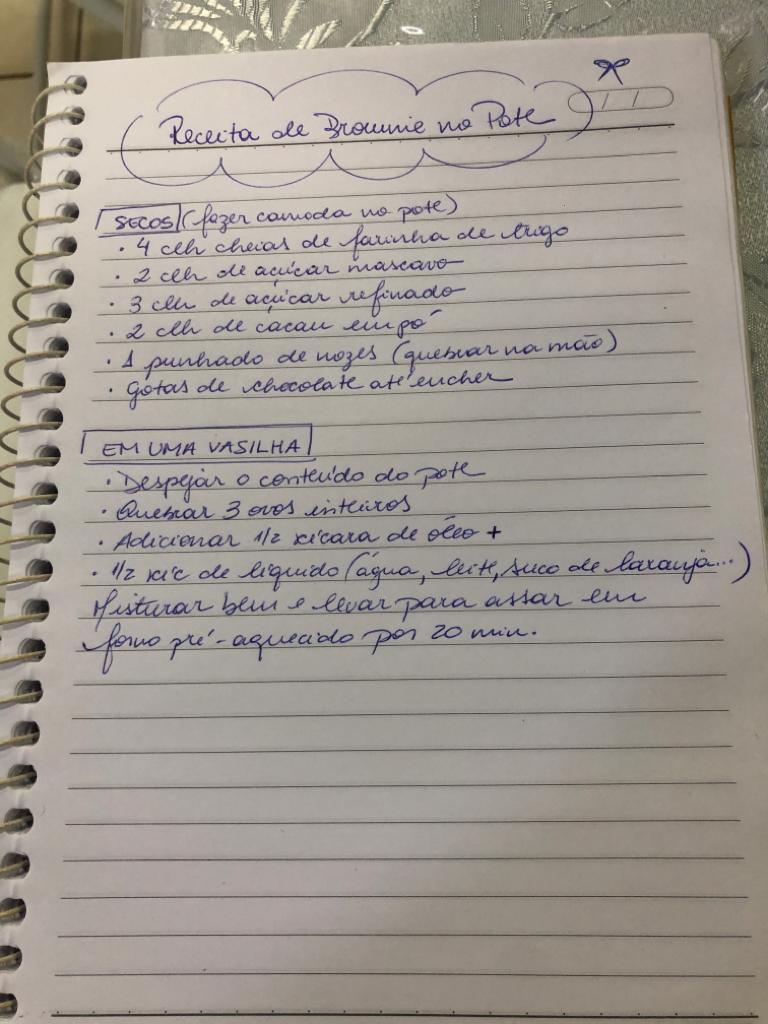 Receita de Brownie no Pote
SECOS (fazer camada no pote)
· 4 clh cheias de farinha de trigo
· 2 clh de açúcar mascavo
· 3 clh de açúcar refinado
· 2 clh de cacau em pó
· 1 punhado de nozes (quebrar na mão)
· gotas de chocolate até encher
EM UMA VASILHA
· Despejar o conteúdo do pote
· Quebrar 3 ovos inteiros
· Adicionar 1/2 xícara de óleo +
· 1/2 xíc de líquido (água, leite, suco de laranja...)
Misturar bem e levar para assar em
forno pré-aquecido por 20 min.